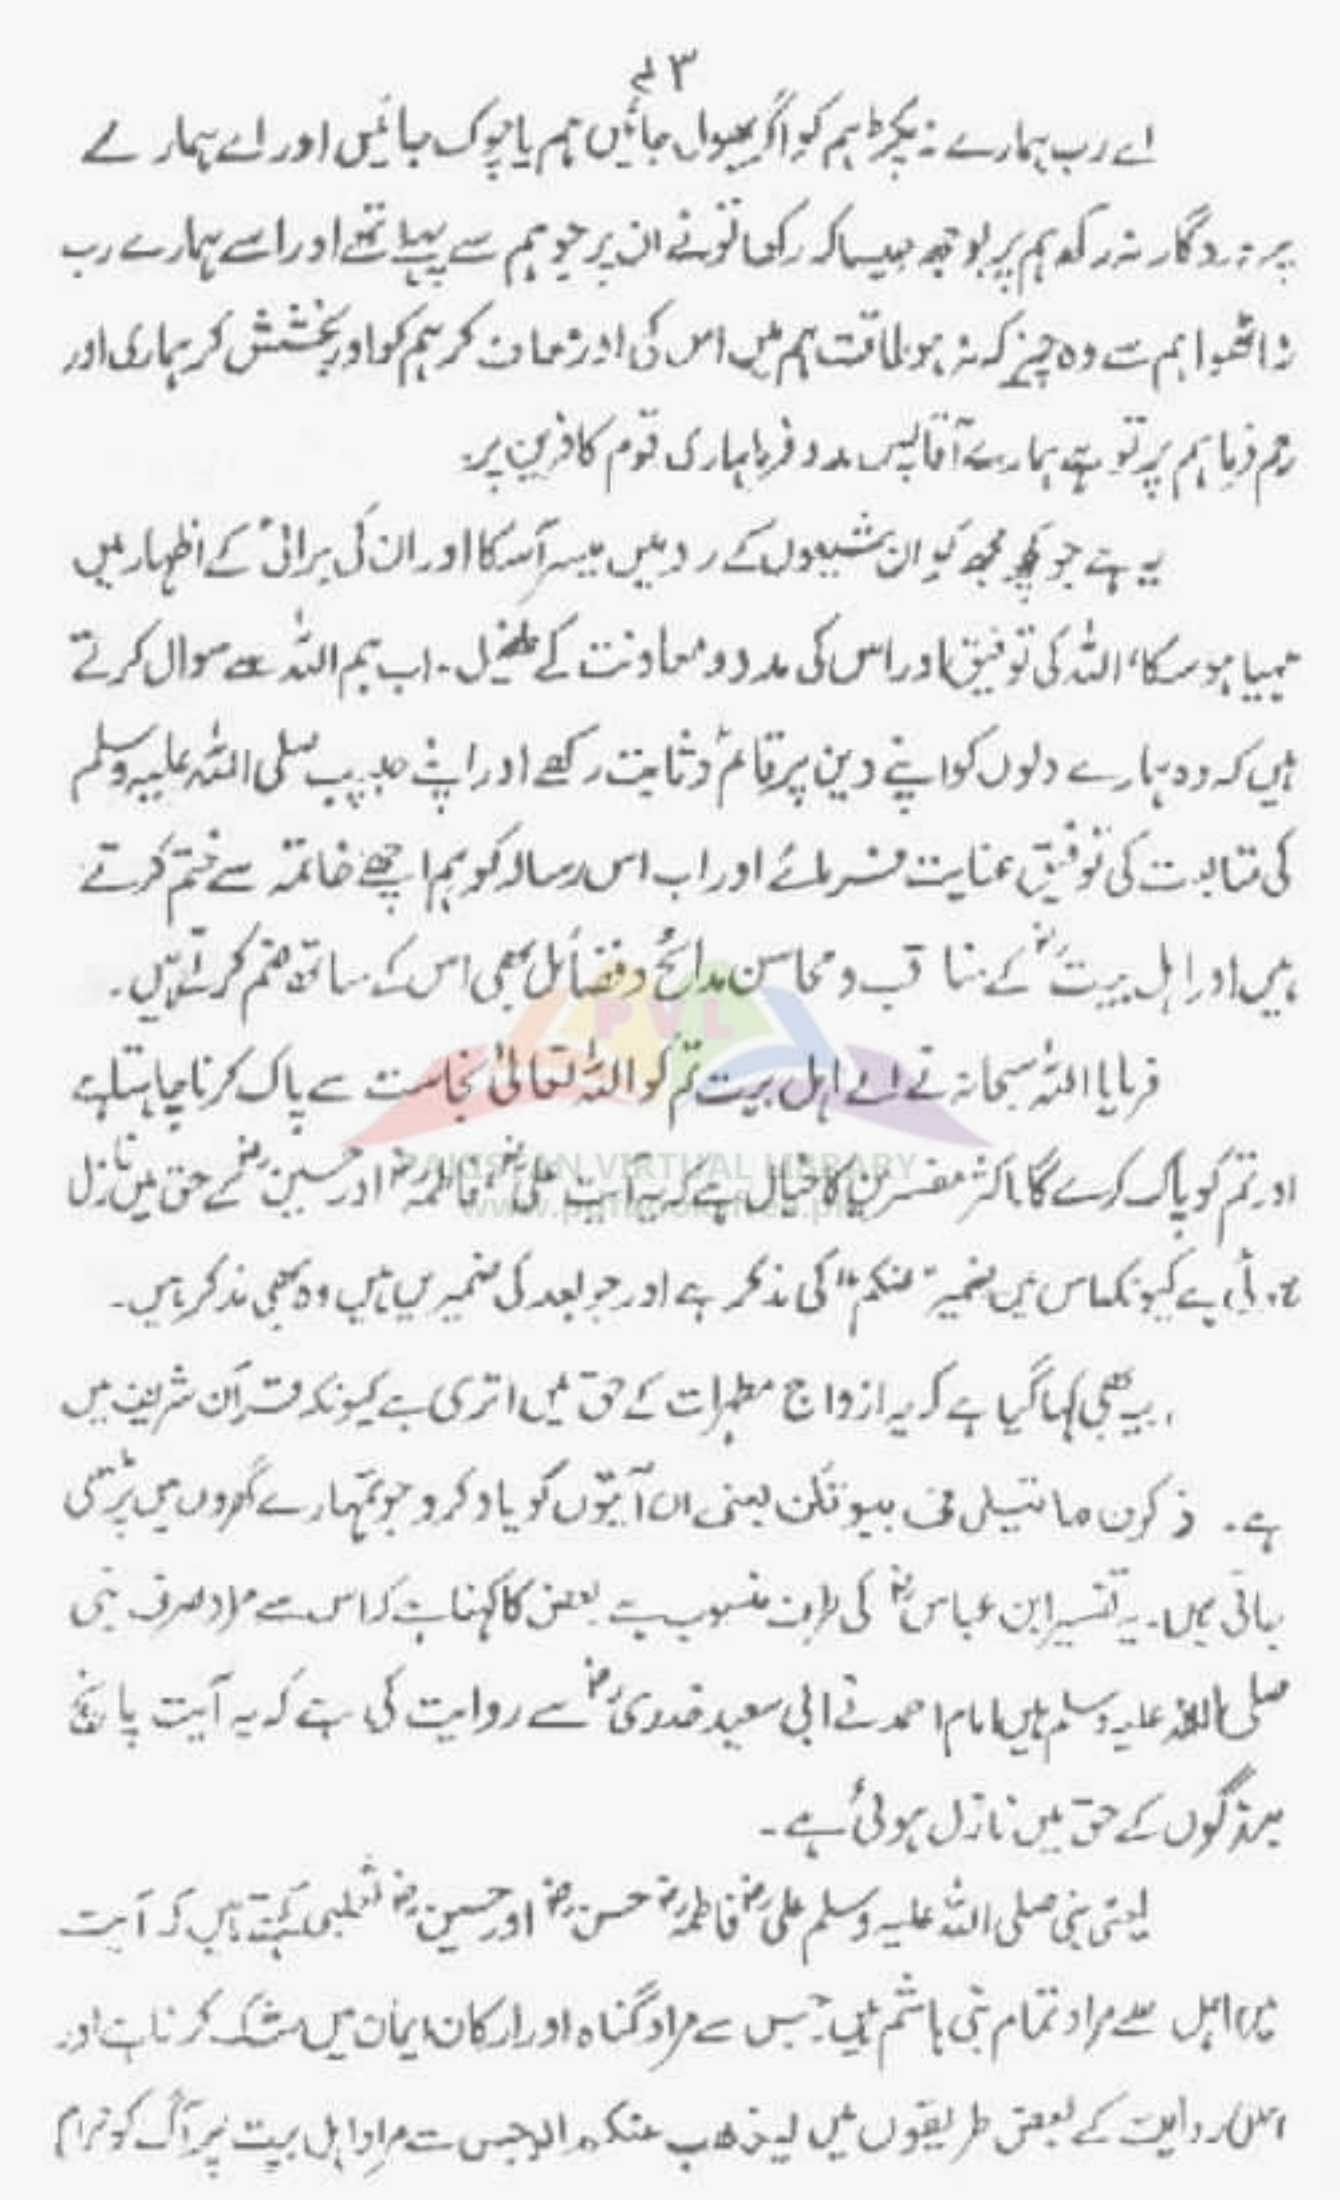 ۷۳
اے رب ہمارے نہ پکڑ ہم کو اگر بھول جائیں ہم یا چوک جائیں اور اے ہمارے
پروردگار نہ رکھ ہم پر بوجھ جیسا کہ رکھا تو نے ان پر جو ہم سے پہلے تھے اور اے ہمارے رب
نہ اٹھوا ہم سے وہ چیز کہ نہ ہو طاقت ہم میں اس کی اور معاف کر ہم کو اور بخشش کر ہماری اور
رحم فرما ہم پر تو ہے ہمارے آقا پس مدد فرما ہماری قوم کافرین پر۔
یہ ہے جو کچھ مجھ کو ان شیعوں کے رد میں میسر آسکا اور ان کی برائی کے اظہار میں
مہیا ہوسکا، اللہ کی توفیق اور اس کی مدد و معاونت کے طفیل۔ اب ہم اللہ سے سوال کرتے
ہیں کہ وہ ہمارے دلوں کو اپنے دین پر قائم و ثابت رکھے اور اپنے حبیب صلی اللہ علیہ وسلم
کی متابعت کی توفیق عنایت فرمائے اور اب اس رسالہ کو ہم اچھے خاتمہ سے ختم کرتے
ہیں اور اہل بیتؓ کے مناقب و محاسن مدائح و فضائل بھی اس کے ساتھ ضم کرتے ہیں۔
فرمایا اللہ سبحانہ نے اے اہل بیت تم کو اللہ تعالیٰ نجاست سے پاک کرنا چاہتا ہے
اور تم کو پاک کرے گا اکثر مفسرین کا خیال ہے کہ یہ آیت علیؓ، فاطمہؓ اور حسینؓ کے حق میں نازل
ہوئی ہے کیونکہ اس میں ضمیر "عنکم" کی مذکر ہے اور جو بعد کی ضمیریں ہیں وہ بھی مذکر ہیں۔
یہ بھی کہا گیا ہے کہ یہ ازواج مطہرات کے حق میں اتری ہے کیونکہ قرآن شریف میں
ہے۔ ذکرن ما یتلی فی بیوتکن یعنی ان آیتوں کو یاد کرو جو تمہارے گھروں میں پڑھی
جاتی ہیں۔ یہ تفسیر ابن عباسؓ کی طرف منسوب ہے بعض کا کہنا ہے کہ اس سے مراد صرف نبی
صلی اللہ علیہ وسلم ہیں امام احمد نے ابی سعید خدریؓ سے روایت کی ہے کہ یہ آیت پانچ
بزرگوں کے حق میں نازل ہوئی ہے۔
یعنی نبی صلی اللہ علیہ وسلم علیؓ فاطمہؓ حسنؓ اور حسینؓ ثعلبی کہتے ہیں کہ آیت
میں اہل سے مراد تمام بنی ہاشم ہیں۔ رجس سے مراد گناہ اور ارکان ایمان میں شک کرنا ہے اور
اس روایت کے بعض طریقوں میں لیذھب عنکم الرجس سے مراد اہل بیت پر آگ کو حرام
PVL
PAKISTAN VIRTUAL LIBRARY
www.pdfbooksfree.pk